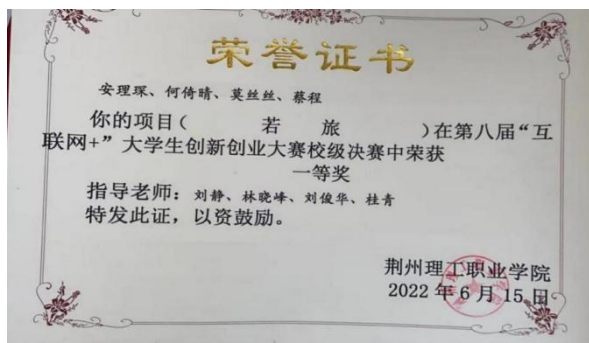 荣誉证书
安理琛、何倚晴、莫丝丝、蔡程
你的项目( 若 旅 )在第八届“互
联网+”大学生创新创业大赛校级决赛中荣获
一等奖
指导老师：刘静、林晓峰、刘俊华、桂青
特发此证，以资鼓励。
荆州理工职业学院
2022年6月15日